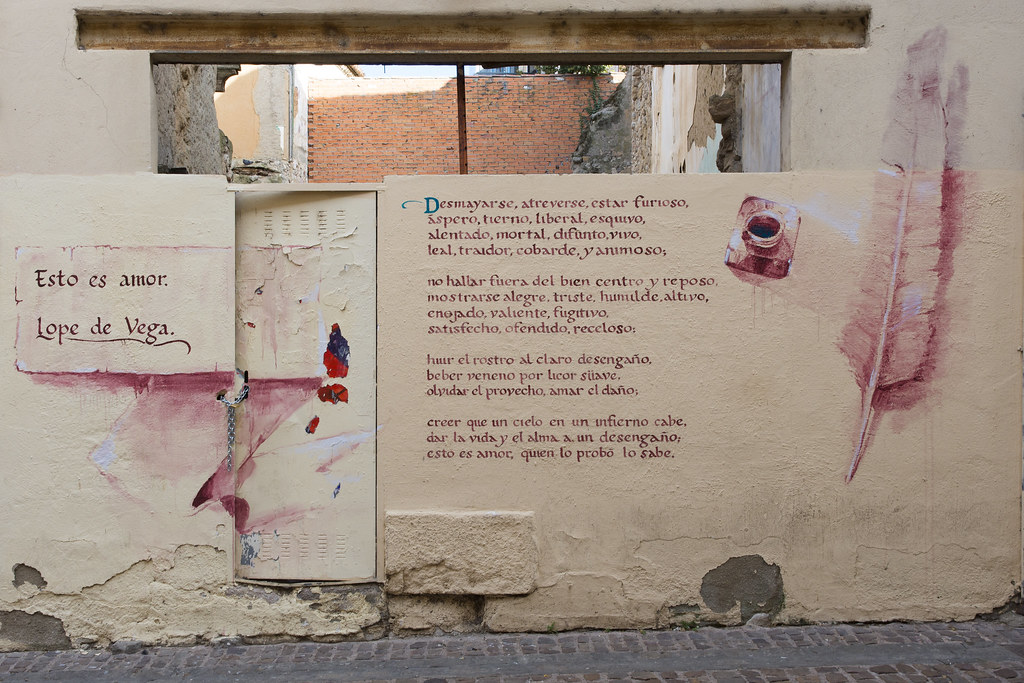 Esto es amor.
Lope de Vega.
Desmayarse, atreverse, estar furioso,
áspero, tierno, liberal, esquivo,
alentado, mortal, difunto, vivo,
leal, traidor, cobarde, y animoso;
no hallar fuera del bien centro y reposo,
mostrarse alegre, triste, humilde, altivo,
enojado, valiente, fugitivo,
satisfecho, ofendido, receloso;
huir el rostro al claro desengaño,
beber veneno por licor süave,
olvidar el provecho, amar el daño;
creer que un cielo en un infierno cabe,
dar la vida y el alma a un desengaño;
esto es amor, quien lo probó lo sabe.